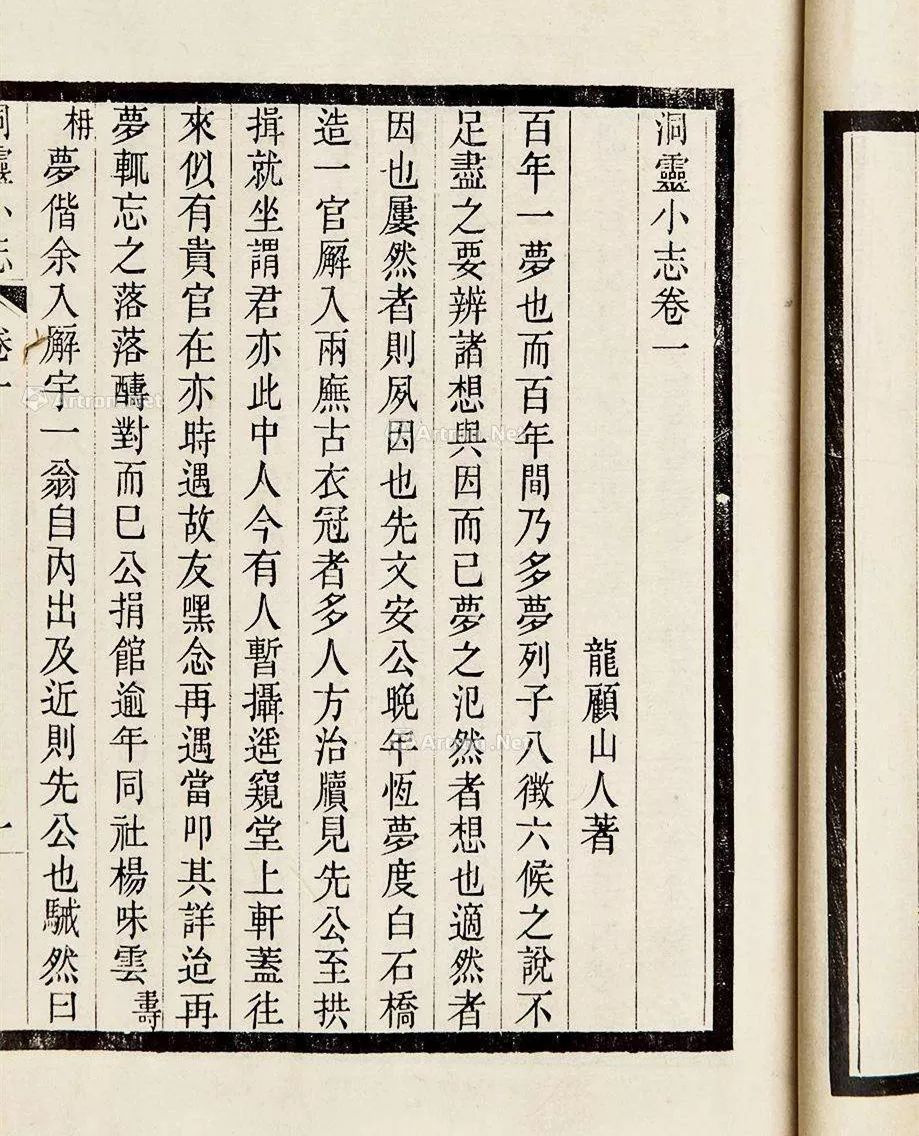 洞靈小志卷一
龍顧山人著
百年一夢也而百年間乃多夢列子八徵六候之說不
足盡之要辨諸想與因而已夢之氾然者想也適然者
因也屢然者則夙因也先文安公晚年恆夢度白石橋
造一官廨入兩廡古衣冠者多人方治牘見先公至拱
揖就坐謂君亦此中人今有人暫攝遥窺堂上軒蓋往
來似有貴官在亦時遇故友嘿念再遇當叩其詳迨再
夢輒忘之落落醻對而已公捐館逾年同社楊味雲壽
枏夢偕余入廨宇一翁自內出及近則先公也駴然曰
洞靈小志 卷一 一
Artron.Net
Artron.Net
Artron.Net